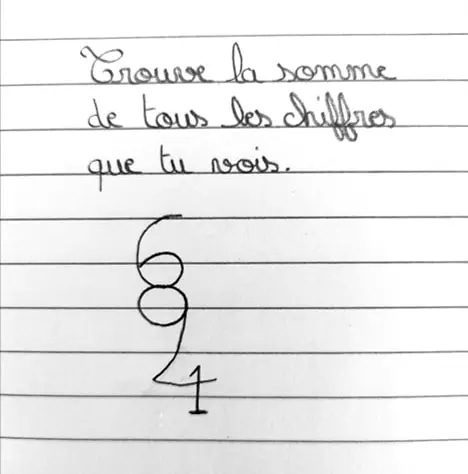 Trouve la somme
de tous les chiffres
que tu vois.
6
8
9
4
1